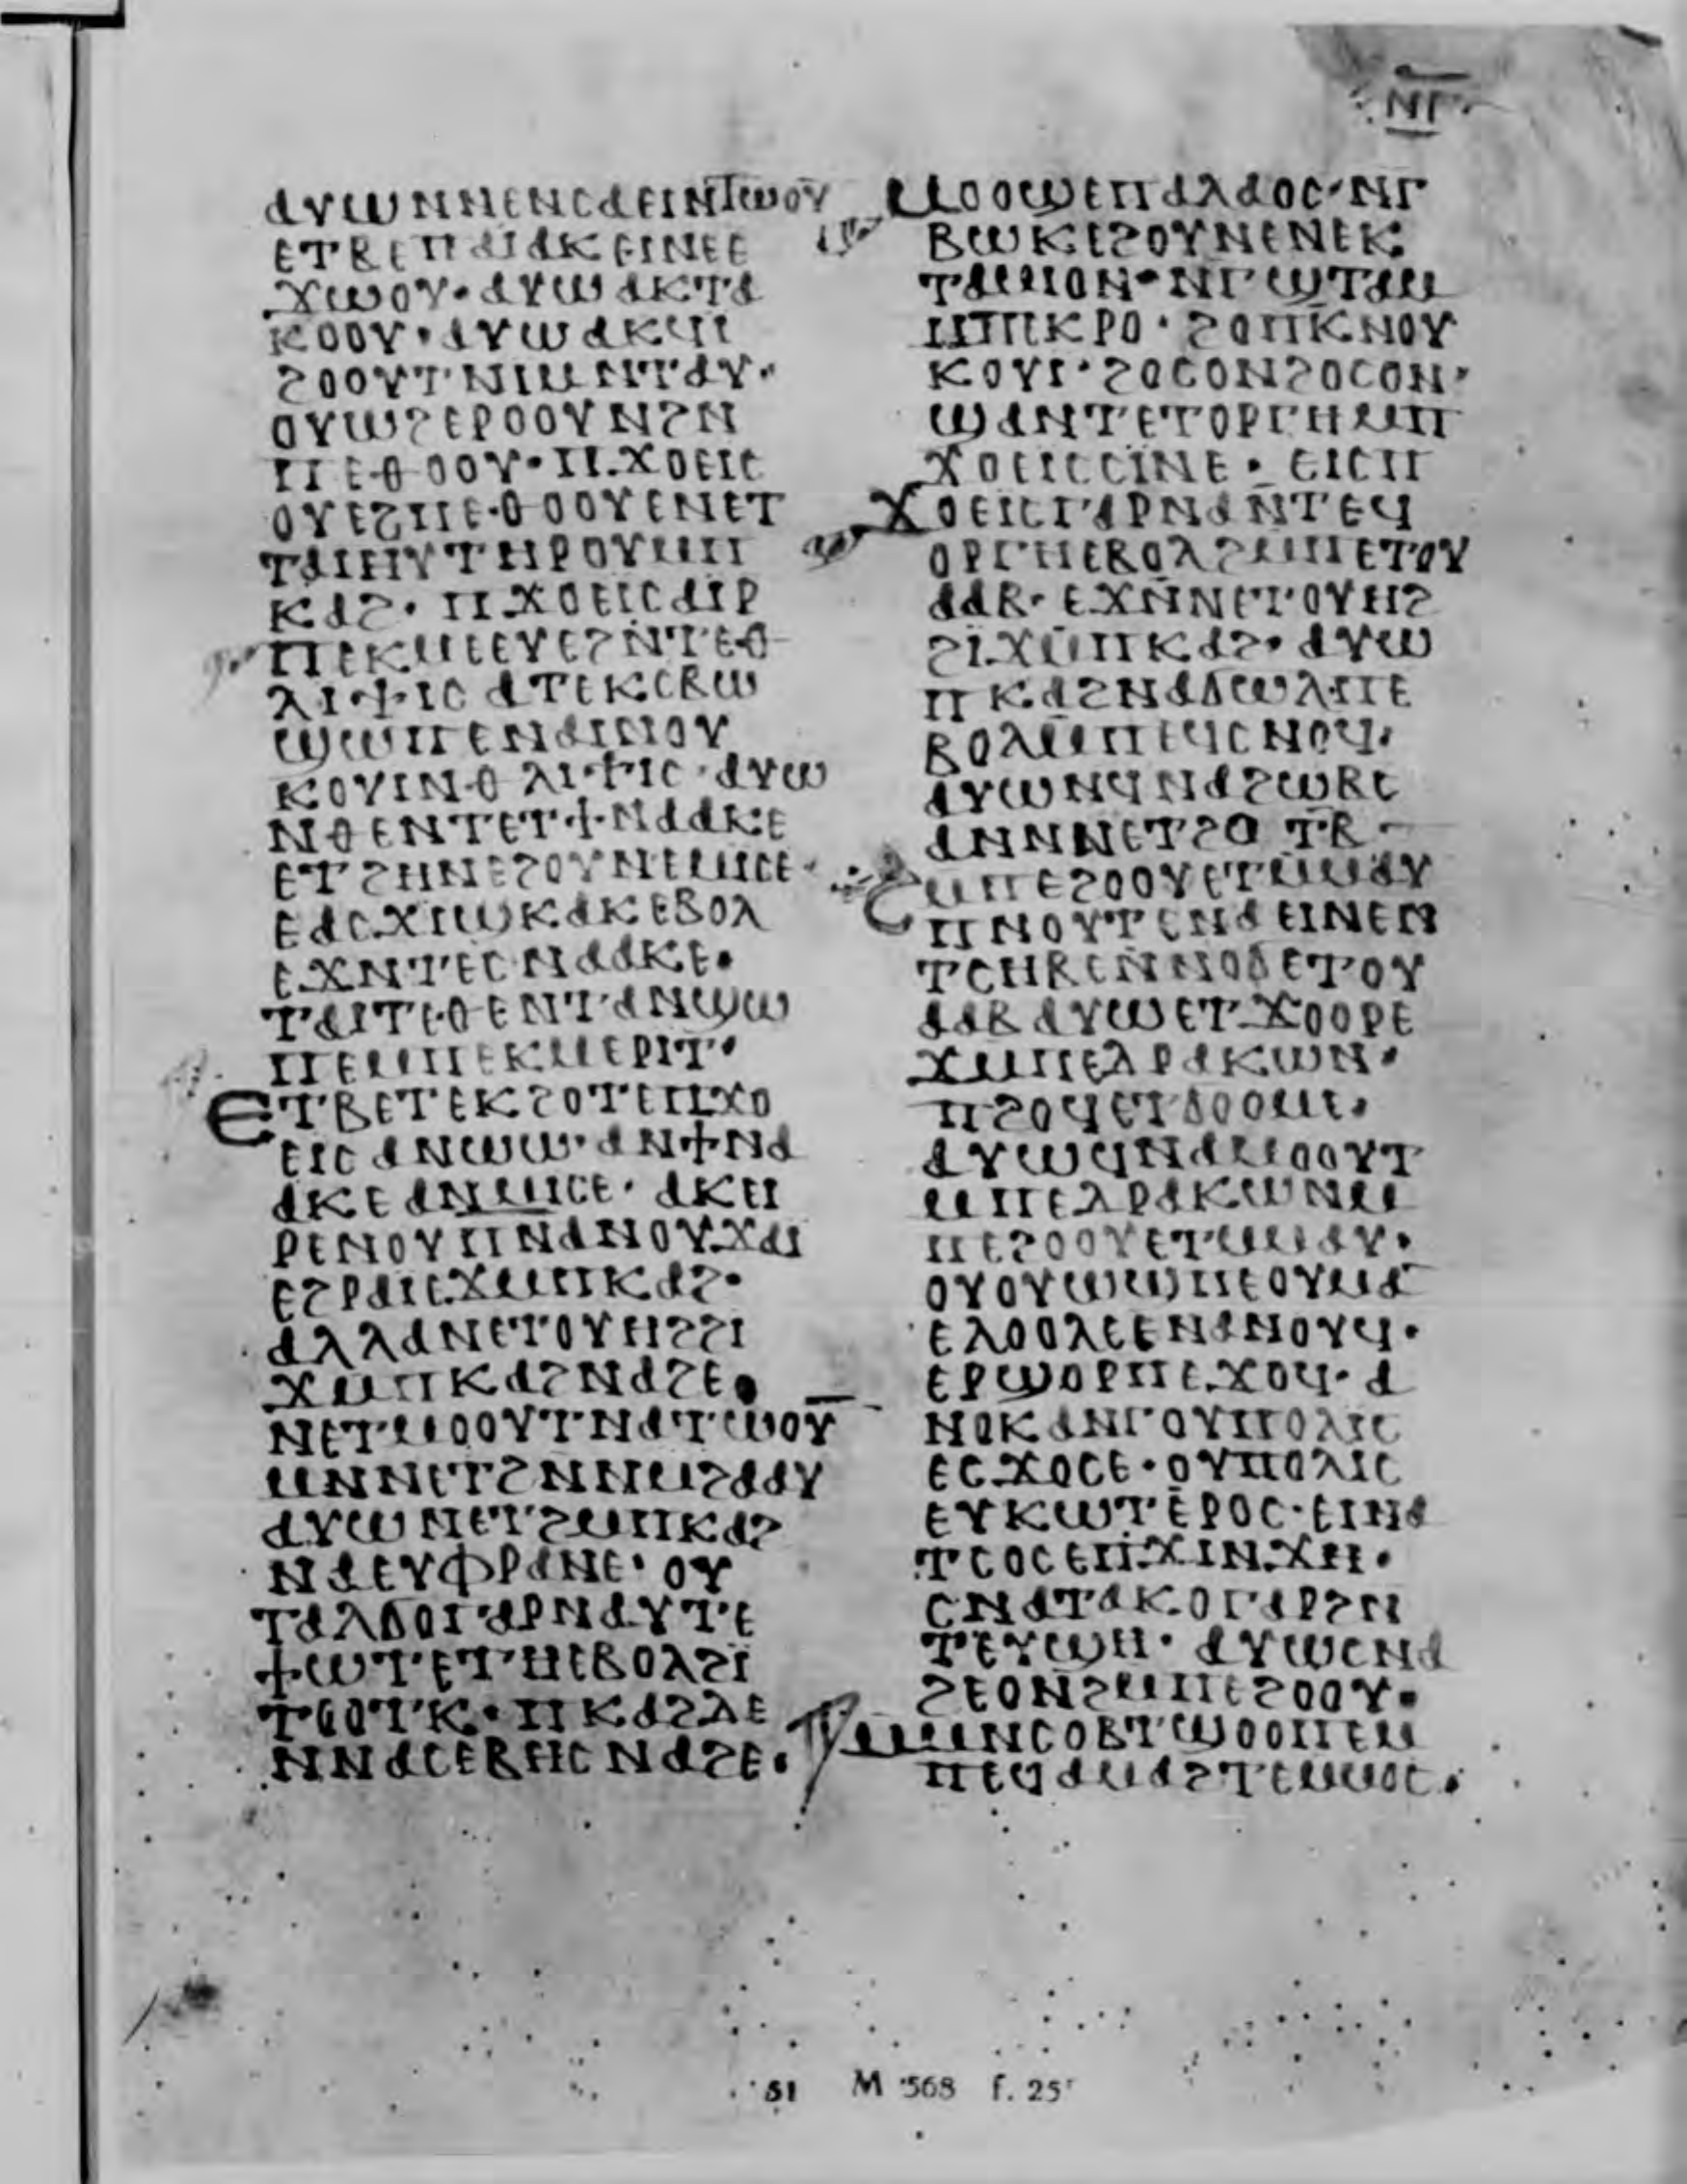 ⲚⲄ
ⲁⲩⲱⲛⲛⲉⲛⲥⲁⲉⲓⲛⲧⲱⲟⲩ
ⲉⲧⲃⲉⲡⲁⲓⲁⲕⲉⲓⲛⲉⲉ
ϫⲱⲟⲩ·ⲁⲩⲱⲁⲕⲧⲁ
ⲕⲟⲟⲩ·ⲁⲩⲱⲁⲕϥⲓ
ϩⲟⲟⲩⲧⲛⲓⲙⲛⲧⲁⲩ·
ⲟⲩⲱϩⲉⲣⲟⲟⲩⲛϩⲛ
ⲡⲉⲑⲟⲟⲩ·ⲡϫⲟⲉⲓⲥ
ⲟⲩⲉϩⲡⲉⲑⲟⲟⲩⲉⲛⲉⲧ
ⲧⲁⲓⲏⲩⲧⲏⲣⲟⲩⲙⲡ
ⲕⲁϩ·ⲡϫⲟⲉⲓⲥⲁⲓⲣ
ⲡⲉⲕⲙⲉⲉⲩⲉϩⲛⲧⲉⲑ
ⲗⲓⲯⲓⲥ ⲁⲧⲉⲕⲥⲃⲱ
ϣⲱⲡⲉⲛⲁⲓⲛⲟⲩ
ⲕⲟⲩⲓⲛⲑⲗⲓⲯⲓⲥ·ⲁⲩⲱ
ⲛⲑⲉⲛⲧⲉⲧϯⲛⲁⲁⲕⲉ
ⲉⲧϩⲏⲛⲉϩⲟⲩⲛⲉⲙⲓⲥⲉ·
ⲉⲁⲥϫⲓϣⲕⲁⲕⲉⲃⲟⲗ
ⲉϫⲛⲧⲉⲥⲛⲁⲁⲕⲉ·
ⲧⲁⲓⲧⲉⲑⲉⲛⲧⲁⲛϣⲱ
ⲡⲉⲙⲡⲉⲕⲙⲉⲣⲓⲧ·
ⲉⲧⲃⲉⲧⲉⲕϩⲟⲧⲉⲡϫⲟ
ⲉⲓⲥⲁⲛⲱⲱ·ⲁⲛϯⲛⲁ
ⲁⲕⲉⲁⲛⲙⲓⲥⲉ·ⲁⲕⲉⲓ
ⲣⲉⲛⲟⲩⲡⲛⲁⲛⲟⲩϫⲁⲓ
ⲉϩⲣⲁⲓⲉϫⲙⲡⲕⲁϩ·
ⲁⲗⲗⲁⲛⲉⲧⲟⲩⲏϩϩⲓ
ϫⲙⲡⲕⲁϩⲛⲁϩⲉ·
ⲛⲉⲧⲙⲟⲟⲩⲧⲛⲁⲧⲱⲟⲩ
ⲙⲛⲛⲉⲧϩⲛⲛⲙϩⲁⲁⲩ
ⲁⲩⲱⲛⲉⲧϩⲙⲡⲕⲁϩ
ⲛⲁⲉⲩⲫⲣⲁⲛⲉ·ⲟⲩ
ⲧⲁⲗϭⲟⲅⲁⲣⲛⲁⲩⲧⲉ
ϯⲱⲧⲉⲧⲏⲉⲃⲟⲗϩⲓ
ⲧⲟⲟⲧⲕ·ⲡⲕⲁϩⲇⲉ
ⲛⲛⲁⲥⲉⲃⲏⲥⲛⲁϩⲉ·
ⲙⲟⲟϣⲉⲡⲁⲗⲁⲟⲥ·ⲛⲅ
ⲃⲱⲕⲉϩⲟⲩⲛⲉⲛⲉⲕ
ⲧⲁⲙⲓⲟⲛ·ⲛⲅϣⲧⲁⲙ
ⲙⲡⲉⲕⲣⲟ·ϩⲟⲡⲕⲛⲟⲩ
ⲕⲟⲩⲓ·ϩⲟⲥⲟⲛϩⲟⲥⲟⲛ·
ϣⲁⲛⲧⲉⲧⲟⲣⲅⲏⲙⲡ
ϫⲟⲉⲓⲥⲥⲓⲛⲉ·ⲉⲓⲥⲡ
ϫⲟⲉⲓⲥⲅⲁⲣⲛⲁⲛⲧⲉϥ
ⲟⲣⲅⲏⲉⲃⲟⲗϩⲙⲡⲉⲧⲟⲩ
ⲁⲁⲃ·ⲉϫⲛⲛⲉⲧⲟⲩⲏϩ
ϩⲓϫⲙⲡⲕⲁϩ·ⲁⲩⲱ
ⲡⲕⲁϩⲛⲁϭⲱⲗⲡⲉ
ⲃⲟⲗⲙⲡⲉϥⲥⲛⲟϥ·
ⲁⲩⲱⲛϥⲛⲁϩⲱⲃⲥ
ⲁⲛⲛⲛⲉⲧϩⲟⲧⲃ
ϩⲙⲡⲉϩⲟⲟⲩⲉⲧⲙⲙⲁⲩ
ⲡⲛⲟⲩⲧⲉⲛⲁⲉⲓⲛⲉⲛ
ⲧⲥⲏϥⲉⲛⲛⲟϭⲉⲧⲟⲩ
ⲁⲁⲃⲁⲩⲱⲉⲧϫⲟⲟⲣⲉ
ϫⲙⲡⲉⲇⲣⲁⲕⲱⲛ·
ⲡϩⲟϥⲉⲧϭⲟⲟⲙⲉ·
ⲁⲩⲱϥⲛⲁⲙⲟⲟⲩⲧ
ⲙⲡⲉⲇⲣⲁⲕⲱⲛⲙ
ⲡⲉϩⲟⲟⲩⲉⲧⲙⲙⲁⲩ·
ⲟⲩⲟⲩⲱϣⲡⲉⲟⲩⲙⲁ
ⲉⲗⲟⲟⲗⲉⲉⲛⲁⲛⲟⲩϥ·
ⲉⲣϣⲟⲣⲡⲉϫⲟϥ·ⲁ
ⲛⲟⲕⲁⲛⲅⲟⲩⲡⲟⲗⲓⲥ
ⲉⲥϫⲟⲥⲉ·ⲟⲩⲡⲟⲗⲓⲥ
ⲉⲩⲕⲱⲧⲉⲣⲟⲥ·ⲉⲓⲛⲁ
ⲧⲥⲟⲥⲉⲡϫⲓⲛϫⲏ·
ⲥⲛⲁⲧⲁⲕⲟⲅⲁⲣϩⲛ
ⲧⲉⲩϣⲏ·ⲁⲩⲱⲥⲛⲁ
ϩⲉⲟⲛϩⲙⲡⲉϩⲟⲟⲩ·
ⲙⲙⲛⲥⲟⲃⲧϣⲟⲟⲡⲉⲙ
ⲡⲉϥⲁⲙⲁϩⲧⲉⲙⲙⲟⲥ·
51 M 568 f. 25ʳ